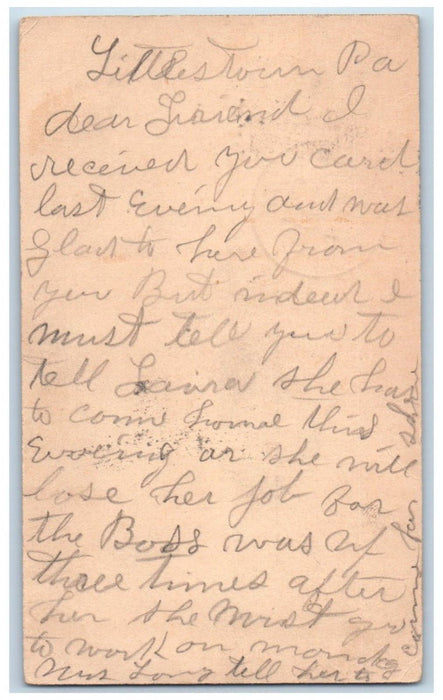 Littlestown Pa
dear Friend I
received you card
last Evening and was
Glad to here from
you But indeed I
must tell you to
tell Laura she has
to come home this
Evening or she will
lose her job for
the Boss was up
three times after
her she Must go
to work on monday
Mrs Long tell her to
come for shure